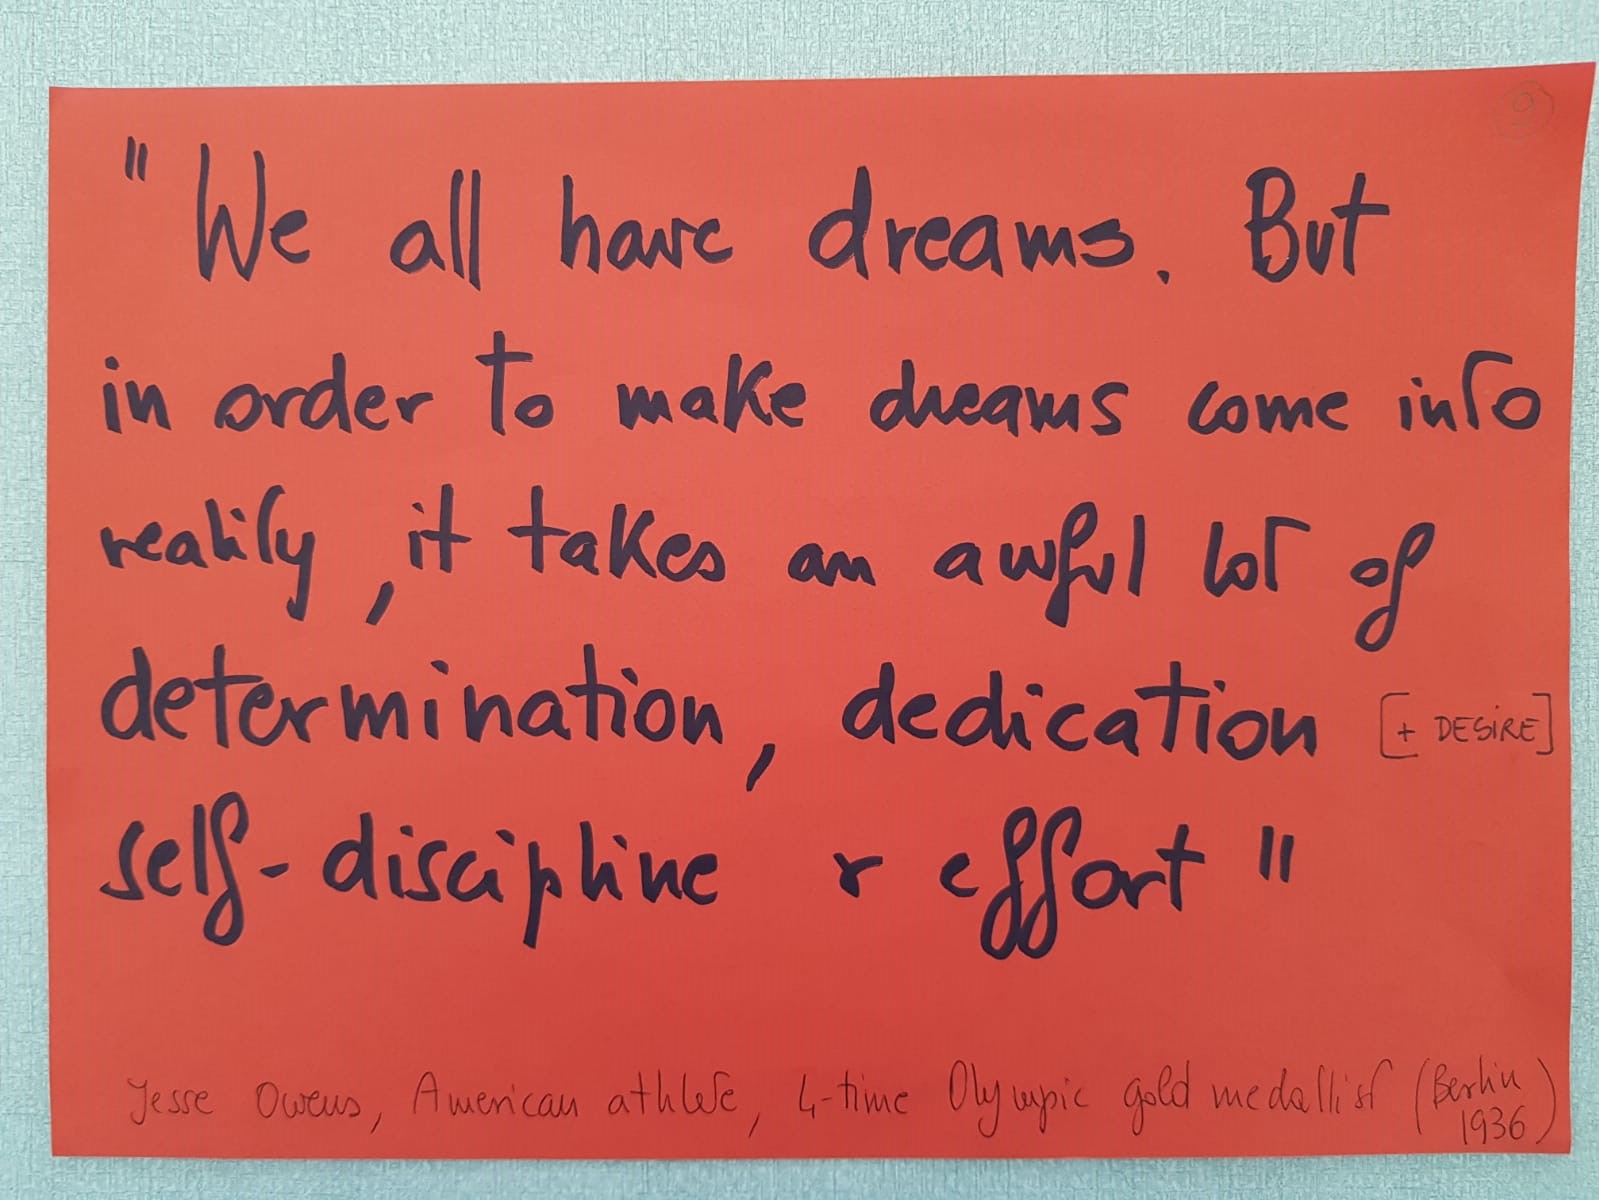 "We all have dreams. But
in order to make dreams come into
reality, it takes an awful lot of
determination, dedication [+ DESIRE]
self-discipline & effort"
Jesse Owens, American athlete, 4-time Olympic gold medallist (Berlin
1936)